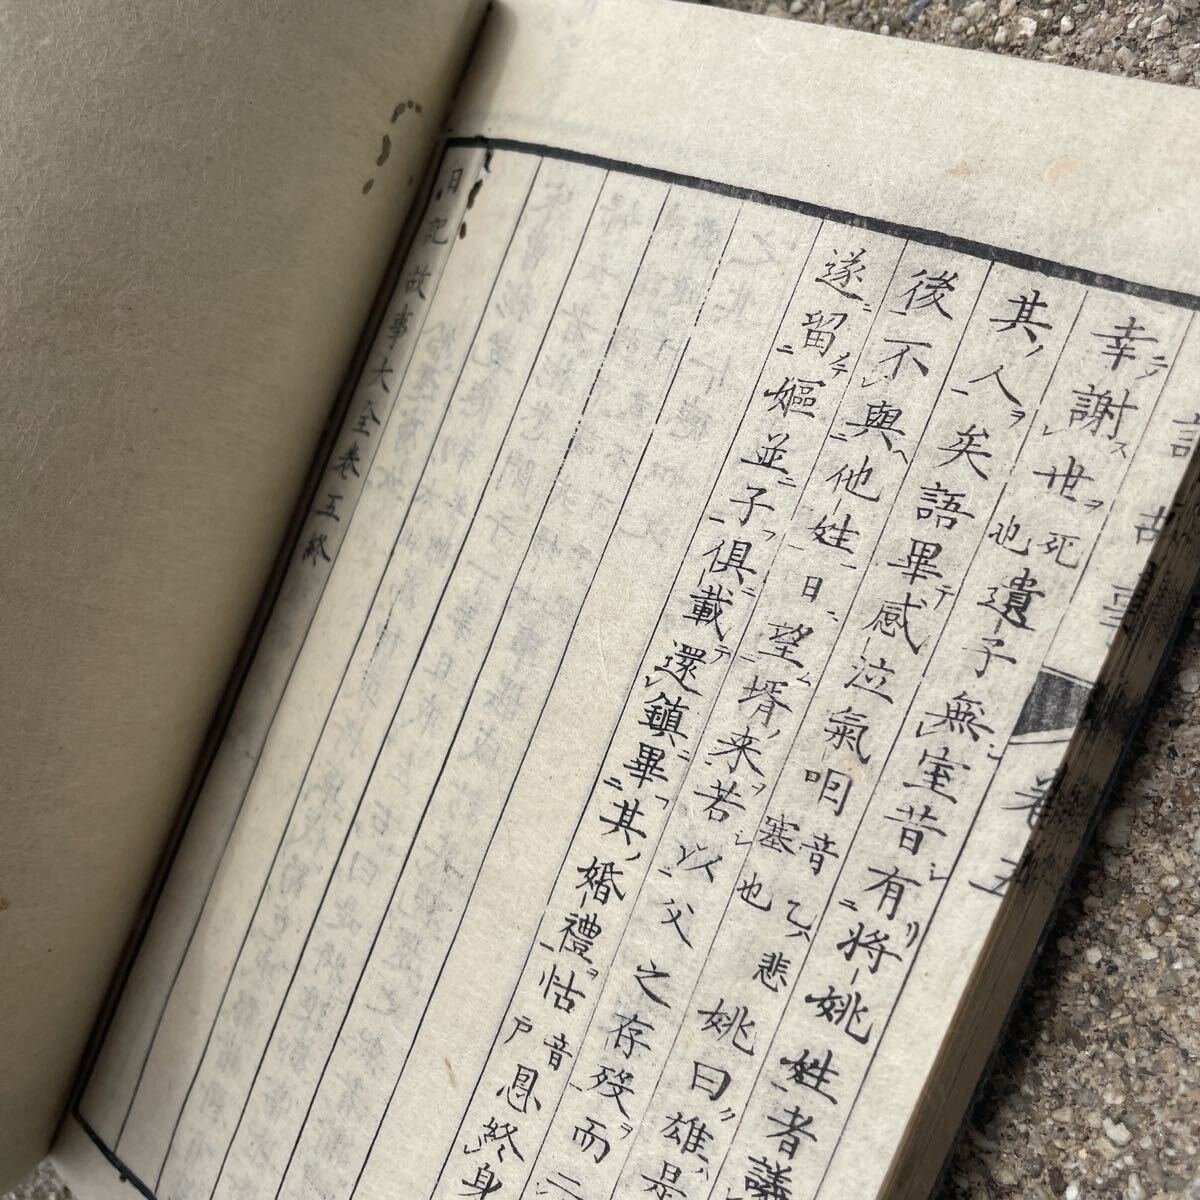 記故事　卷五
幸謝世死也遺子無室昔有將姚姓者議
其人矣語畢感泣氣咽音乙悲塞也姚曰雄是
後不與他姓日望壻来若以父之存歿而二
遂留嫗並子俱載還鎮畢其婚禮怙音戸恩終身
日記故事大全卷五終